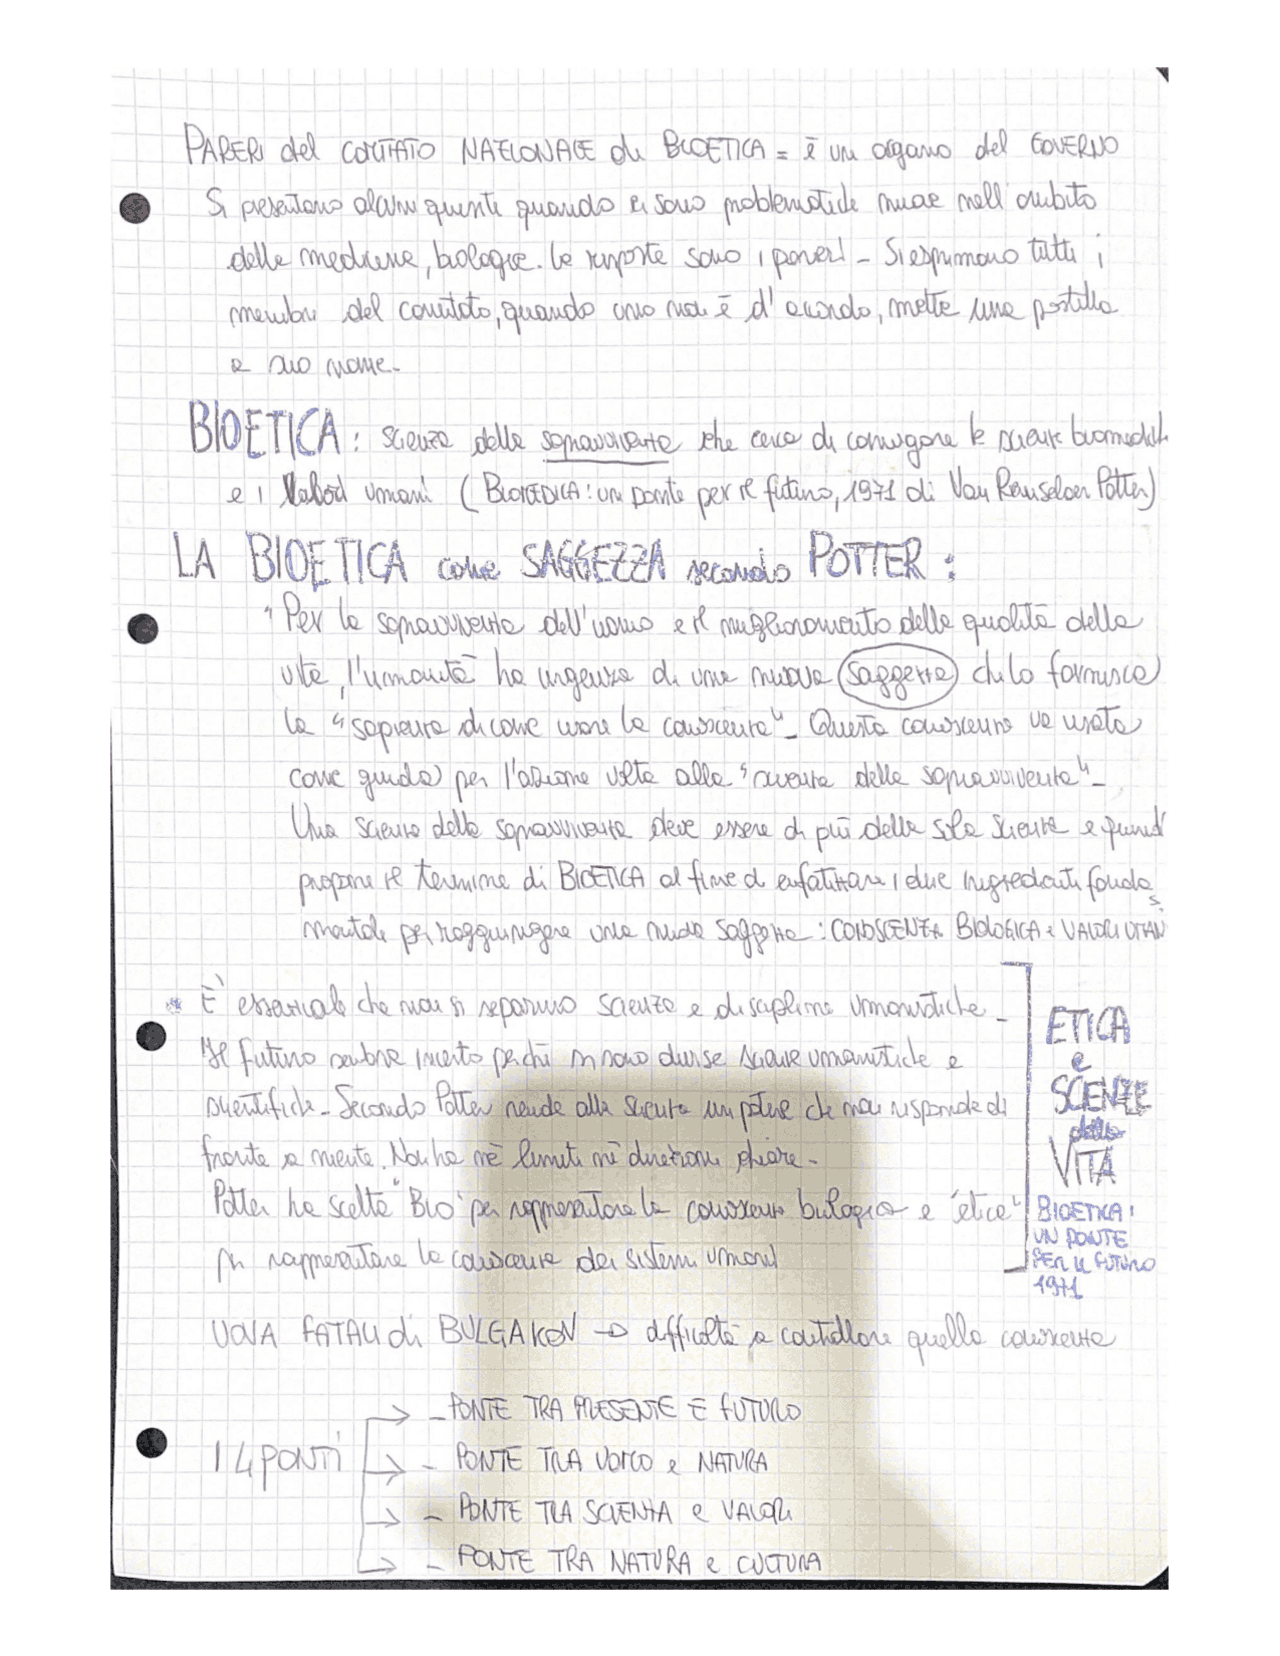 PARERI del COMITATO NAZIONALE di BIOETICA = è un organo del GOVERNO
Si presentano alcuni quesiti quando ci sono problematiche nuove nell'ambito
della medicina, biologia. Le risposte sono i pareri - Si esprimono tutti i
membri del comitato, quando uno non è d'accordo, mette una postilla
a suo nome -
BIOETICA: scienza della sopravvivenza che cerca di coniugare le scienze biomediche
e i valori umani (BIOMEDICA: un ponte per il futuro, 1971 di Van Renselaer Potter)
LA BIOETICA come SAGGEZZA secondo POTTER:
"Per la sopravvivenza dell'uomo e il miglioramento della qualità della
vita, l'umanità ha urgenza di una nuova saggezza che lo fornisca
la "sapienza di come usare la conoscenza" - Questa conoscenza va usata
come guida per l'azione volta alla "scienza della sopravvivenza" -
Una scienza della sopravvivenza deve essere di più della sola scienza e quindi
propone il termine di BIOETICA al fine di enfatizzare i due ingredienti fonda
mentali per raggiungere una nuova saggezza: CONOSCENZA BIOLOGICA e VALORI UMANI
* È essenziale che non si separino scienza e discipline umanistiche -
Il futuro sembra incerto perché si sono divise scienze umanistiche e
scientifiche - Secondo Potter rende alla scienza un potere che non risponde di
fronte a niente. Non ha né limiti né direzioni chiare -
Potter ha scelto "Bio" per rappresentare la conoscenza biologica e "etica"
per rappresentare la conoscenza dei sistemi umani
ETICA
e
SCIENZE
della
VITA
BIOETICA:
UN PONTE
PER IL FUTURO
1971
UOVA FATALI di BULGAKOV → difficoltà a controllare quella conoscenza
I 4 PONTI
- PONTE TRA PRESENTE E FUTURO
- PONTE TRA UOMO e NATURA
- PONTE TRA SCIENZA e VALORI
- PONTE TRA NATURA e CULTURA